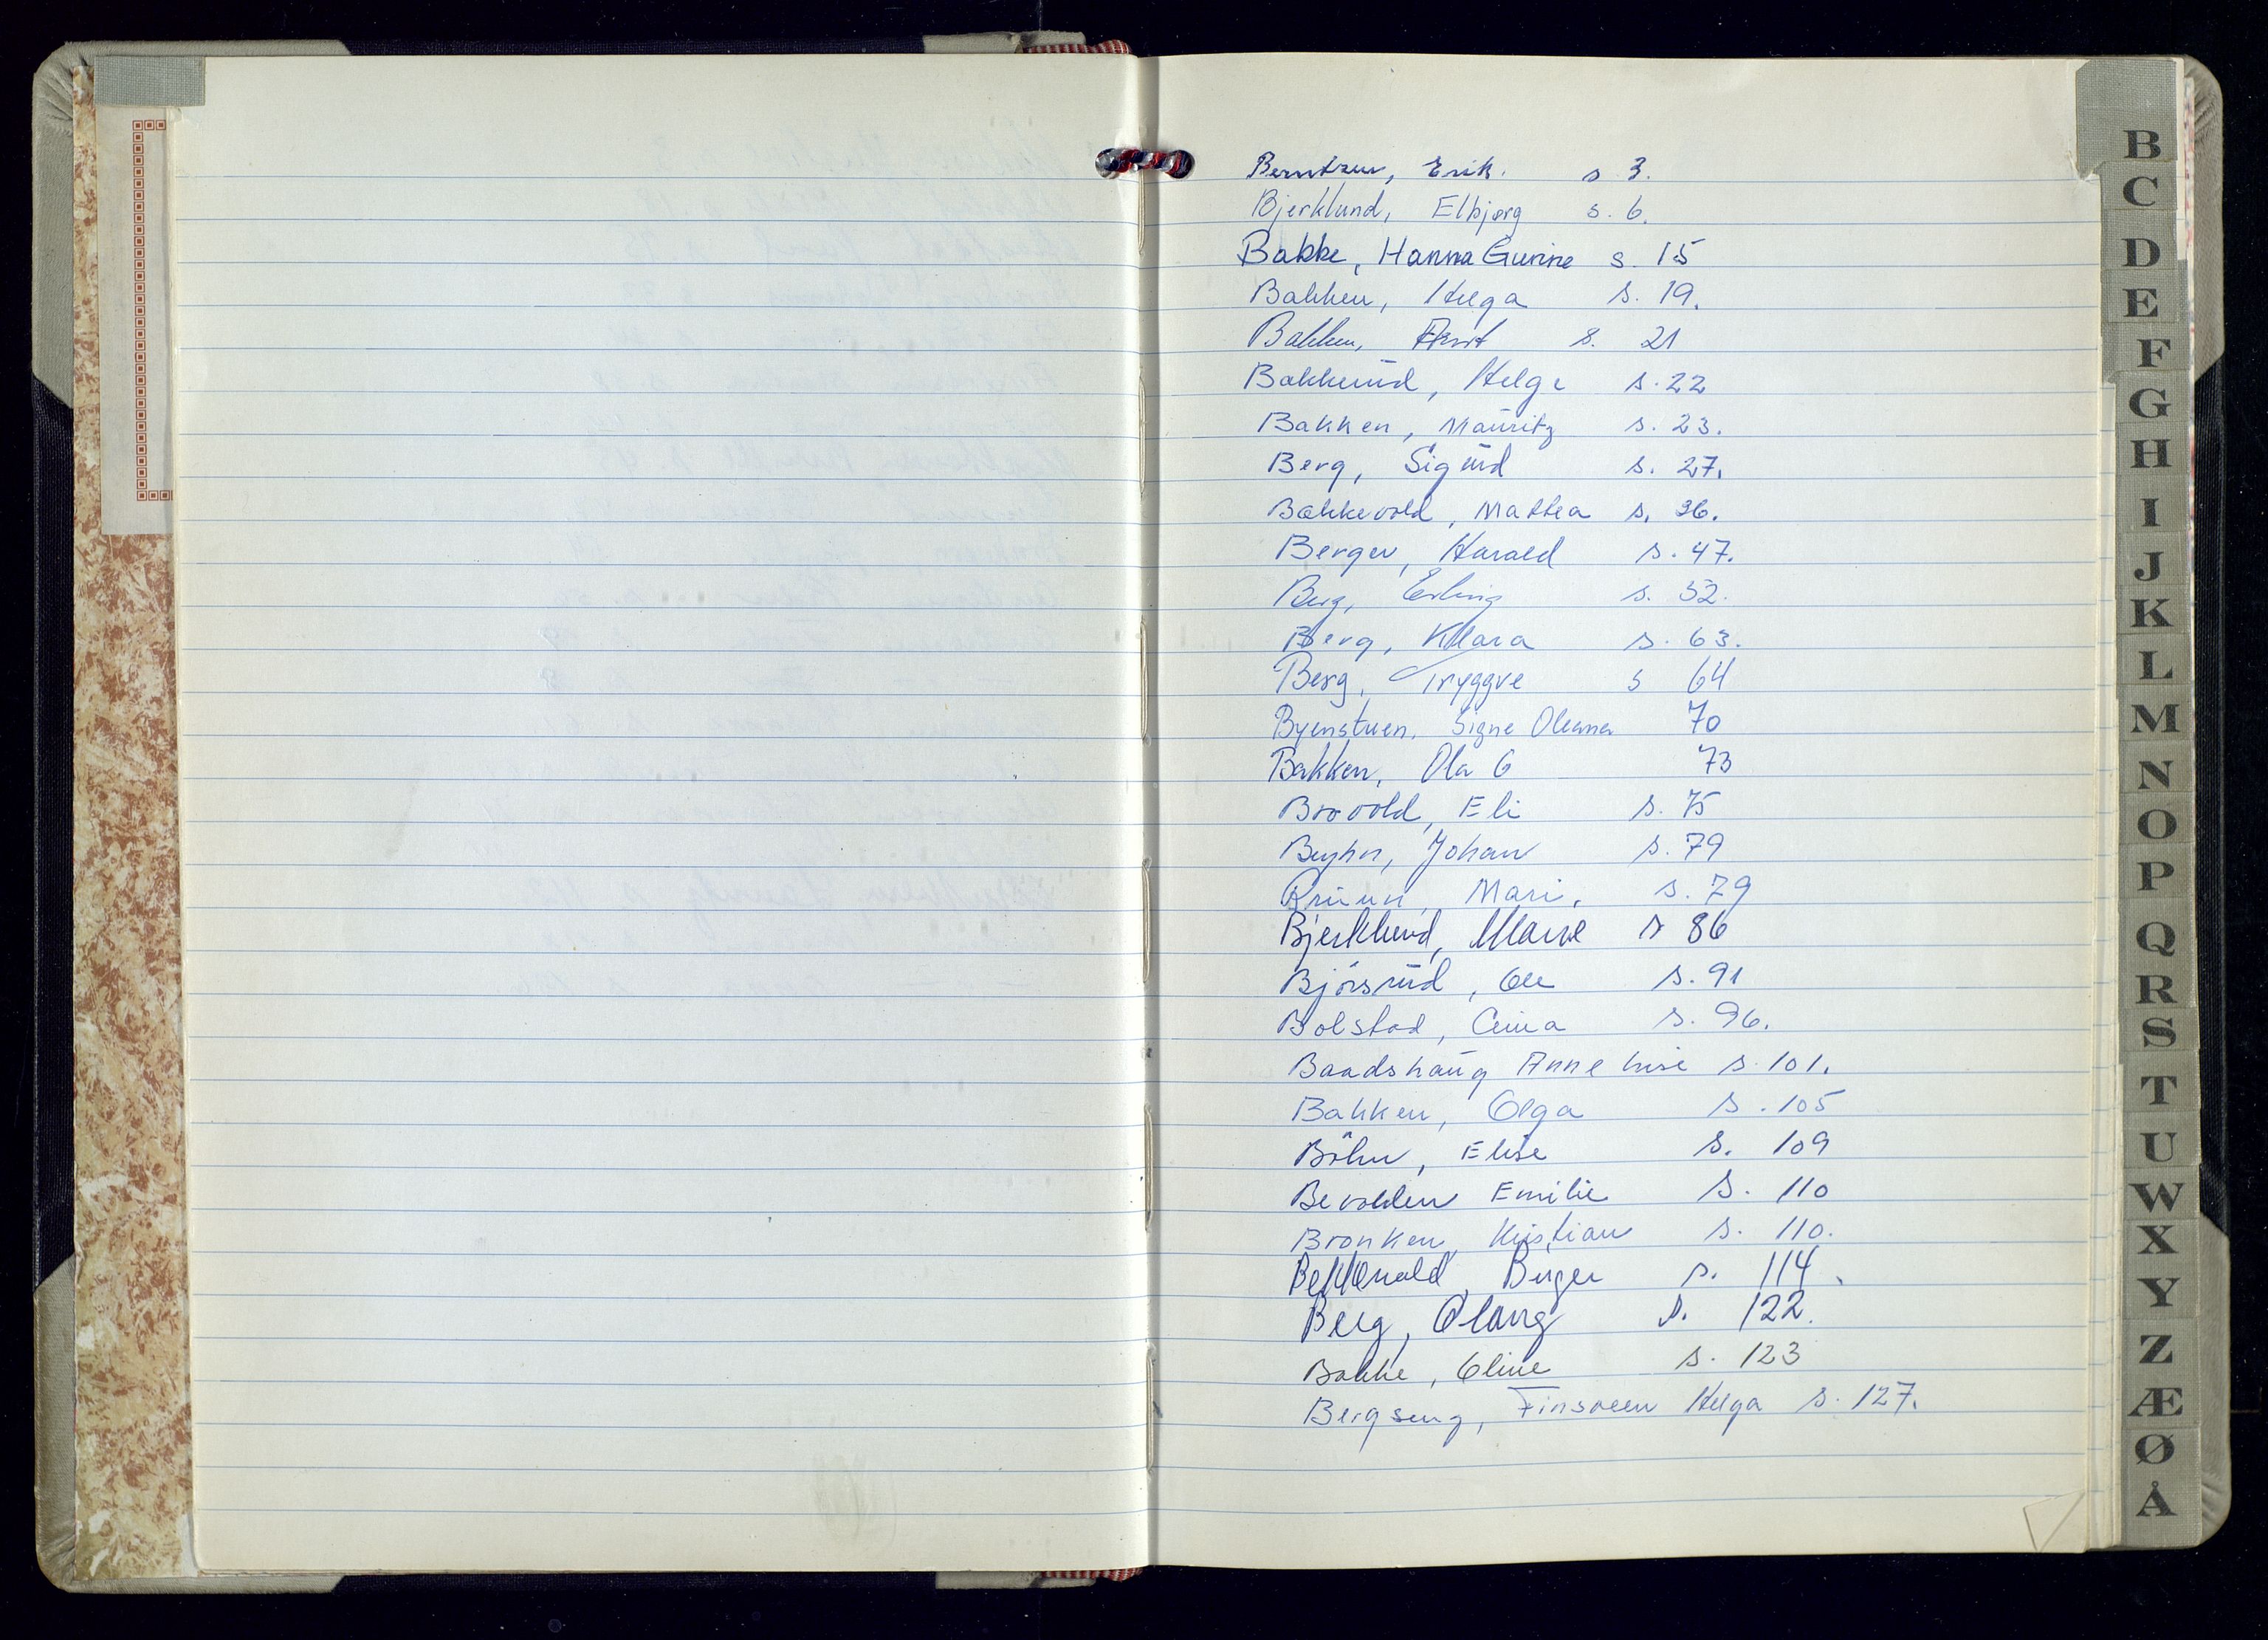 Berntzen, Erik. s 3.
Bjerklund, Elbjørg s. 6.
Bakke, Hanna Gurine s. 15
Bakken, Helga s. 19.
Bakken, s. 21
Bakkerud, Helge s. 22
Bakken, Mauritz s. 23.
Berg, Sigurd s. 27.
Bakkevold, Mathea s. 36.
Berger, Harald s. 47.
Berg, Erling s. 52.
Berg, Klara s. 63.
Berg, Tryggve s 64
Byenstuen, Signe Oleana 70
Bakken, Ola G 73
Brovold, Eli s. 75
Johan s. 79
Bruun, Mari, s. 79
Bjerklund, Marie s 86
Bjørsrud, Ole s. 91
Bolstad, s. 96.
Baadshaug Anne Lise s. 101.
Bakken, Olga s. 105
Böhn, Elise s. 109
Bevolden Emilie s. 110
Bronken, Kristian s. 110.
Bekkevold, Birger s. 114.
Berg, Olaug s. 122.
Bakke, Oline s. 123
Bergseng, Finsveen Helga s. 127.
B
C
D
E
F
G
H
I
J
K
L
M
N
O
P
Q
R
S
T
U
W
X
Y
Z
Æ
Ø
Å